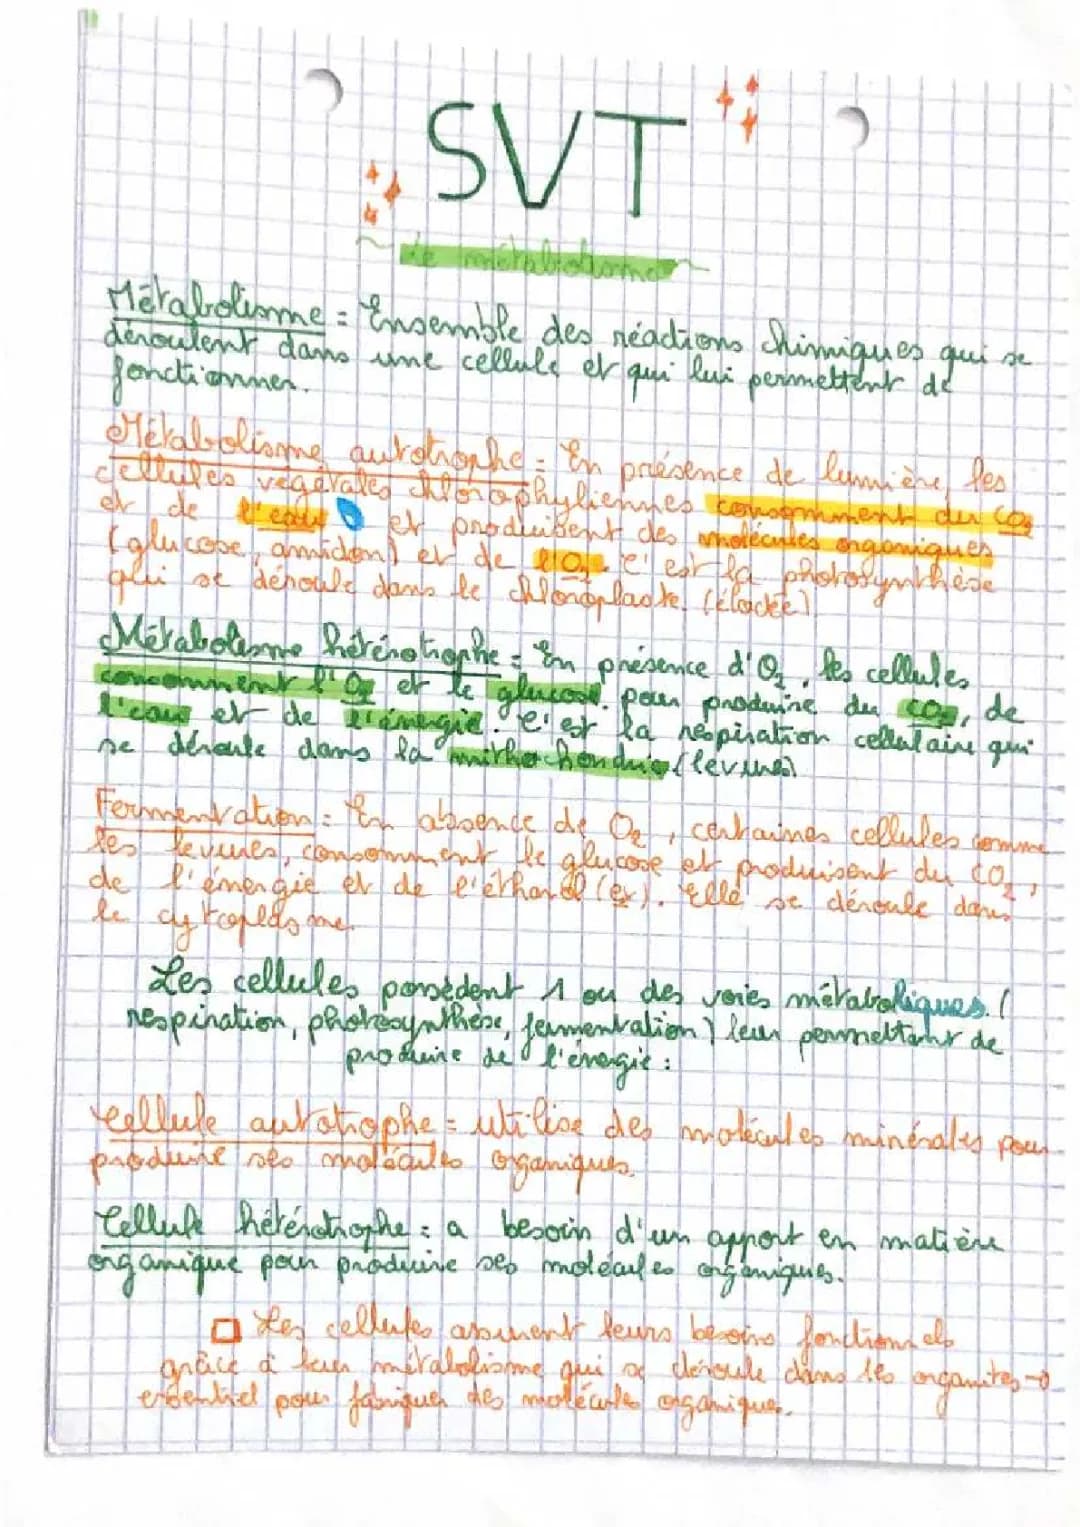 SVT
Le métabolisme
Métabolisme = Ensemble des réactions chimiques qui se
déroulent dans une cellule et qui lui permettent de
fonctionner.
Métabolisme autotrophe = En présence de lumière, les
cellules végétales chlorophyliennes consomment du CO2
et de l'eau et produisent des molécules organiques
(glucose, amidon) et de l'O2. C'est la photosynthèse
qui se déroule dans le chloroplaste.
Métabolisme hétérotrophe = En présence d'O2, les cellules
consomment l'O2 et le glucose pour produire du CO2, de
l'eau et de l'énergie. C'est la respiration cellulaire qui
se déroule dans la mithochondrie (levures)
Fermentation = En absence de O2, certaines cellules comme
les levures, consomment le glucose et produisent du CO2,
de l'énergie et de l'éthanol (ex). Elle se déroule dans
le cytoplasme.
Les cellules possèdent 1 ou des voies métaboliques (
respiration, photosynthèse, fermentation) leur permettant de
produire de l'énergie :
Cellule autotrophe = utilise des molécules minérales pour
produire ses molécules organiques.
Cellule hétérotrophe = a besoin d'un apport en matière
organique pour produire ses molécules organiques.
Les cellules assurent leurs besoins fonctionnels
grâce à leur métabolisme qui se déroule dans les organites →
essentiel pour fabriquer des molécules organiques.